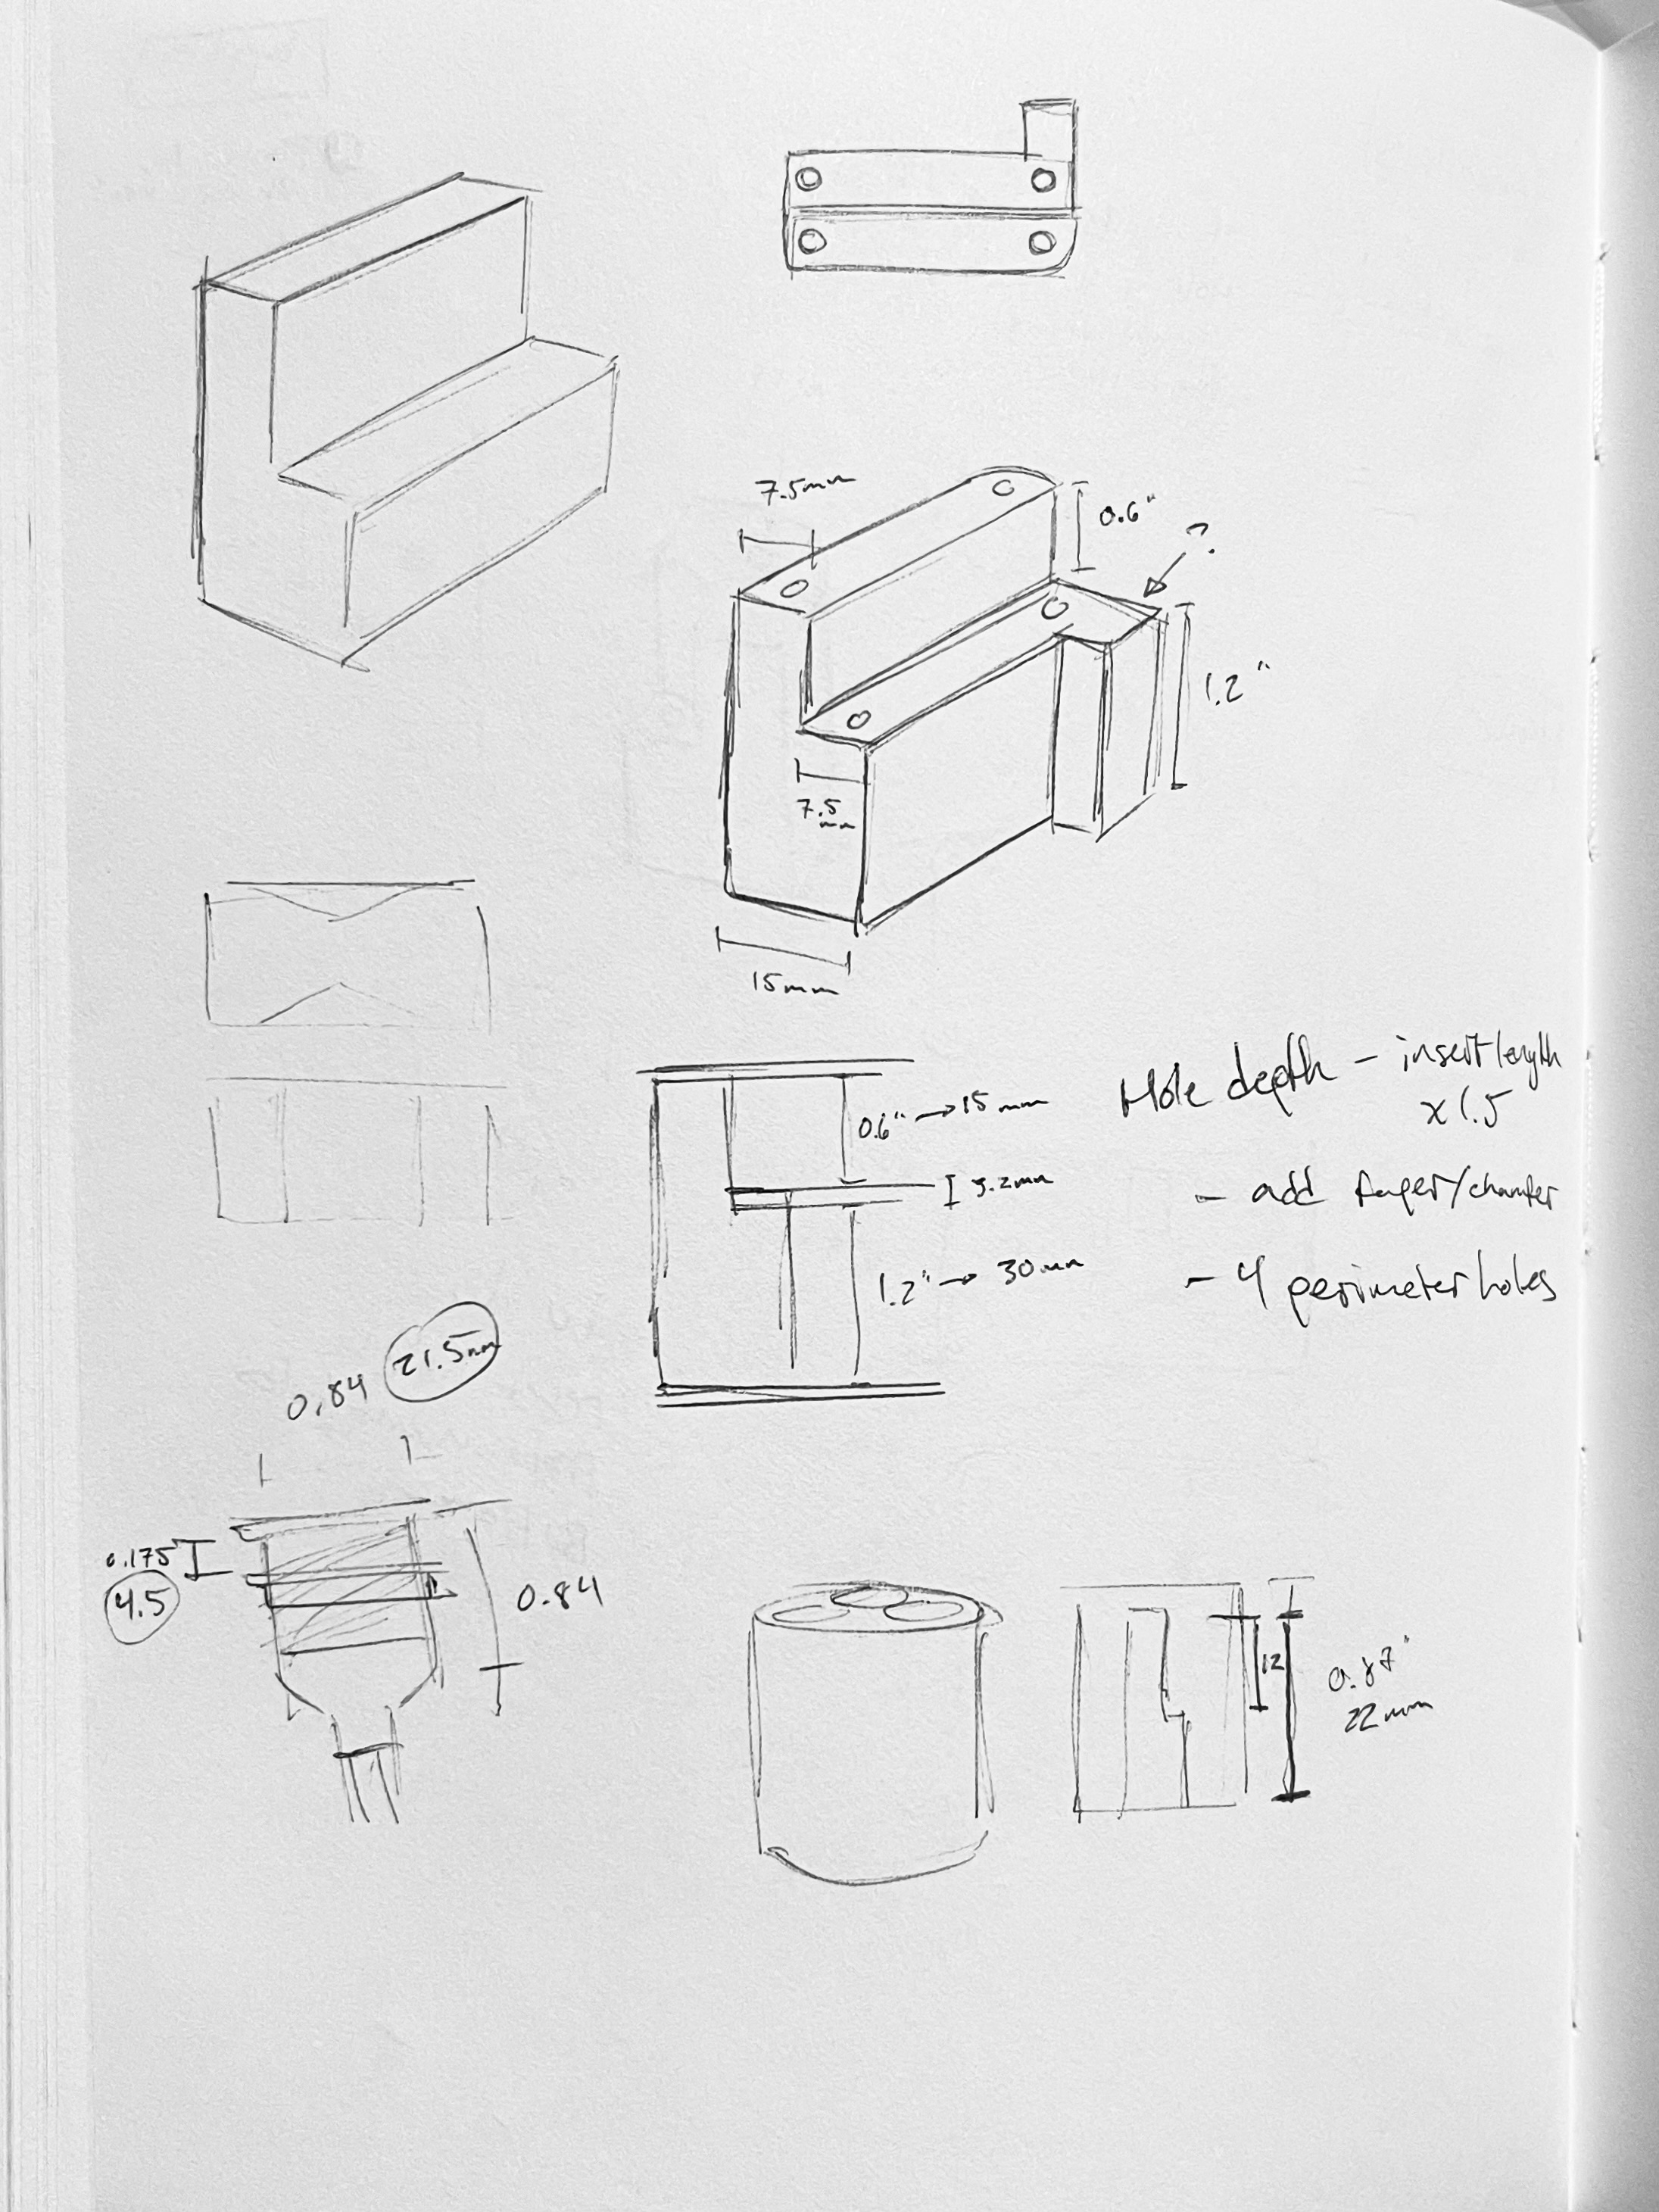 7.5mm
0.6"
?
1.2"
7.5
mm
15mm
Hole depth - insert length
x 1.5
0.6" → 15 mm
- add finger/chamfer
1.2" → 30mm
- 4 perimeter holes
0.84 21.5mm
0.175
4.5
0.84
12
0.87"
22mm